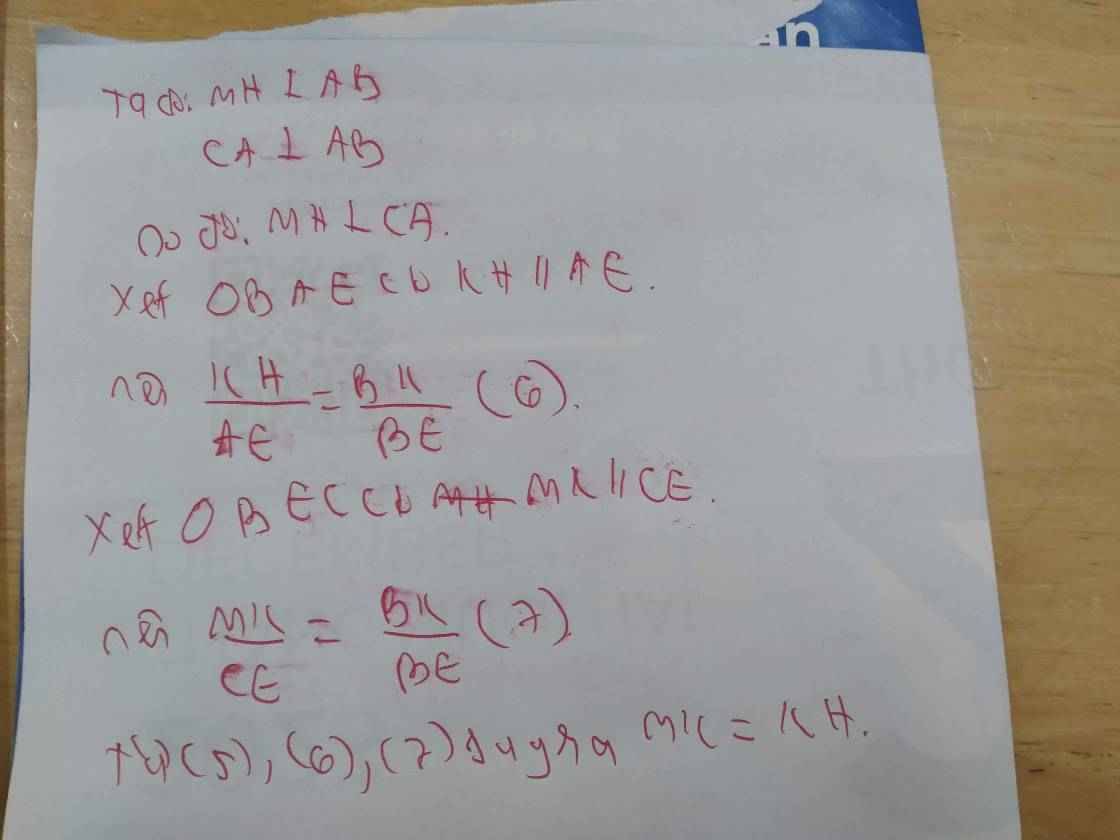 n
Ta có: MH ⊥ AB
CA ⊥ AB
Do đó: MH ⊥ CA.
Xét OBAE có KH // AE.
nên KH/AE = BK/BE (6).
Xét OBEC có MK // CE.
nên MK/CE = BK/BE (7).
Từ (5), (6), (7) suy ra MK = KH.